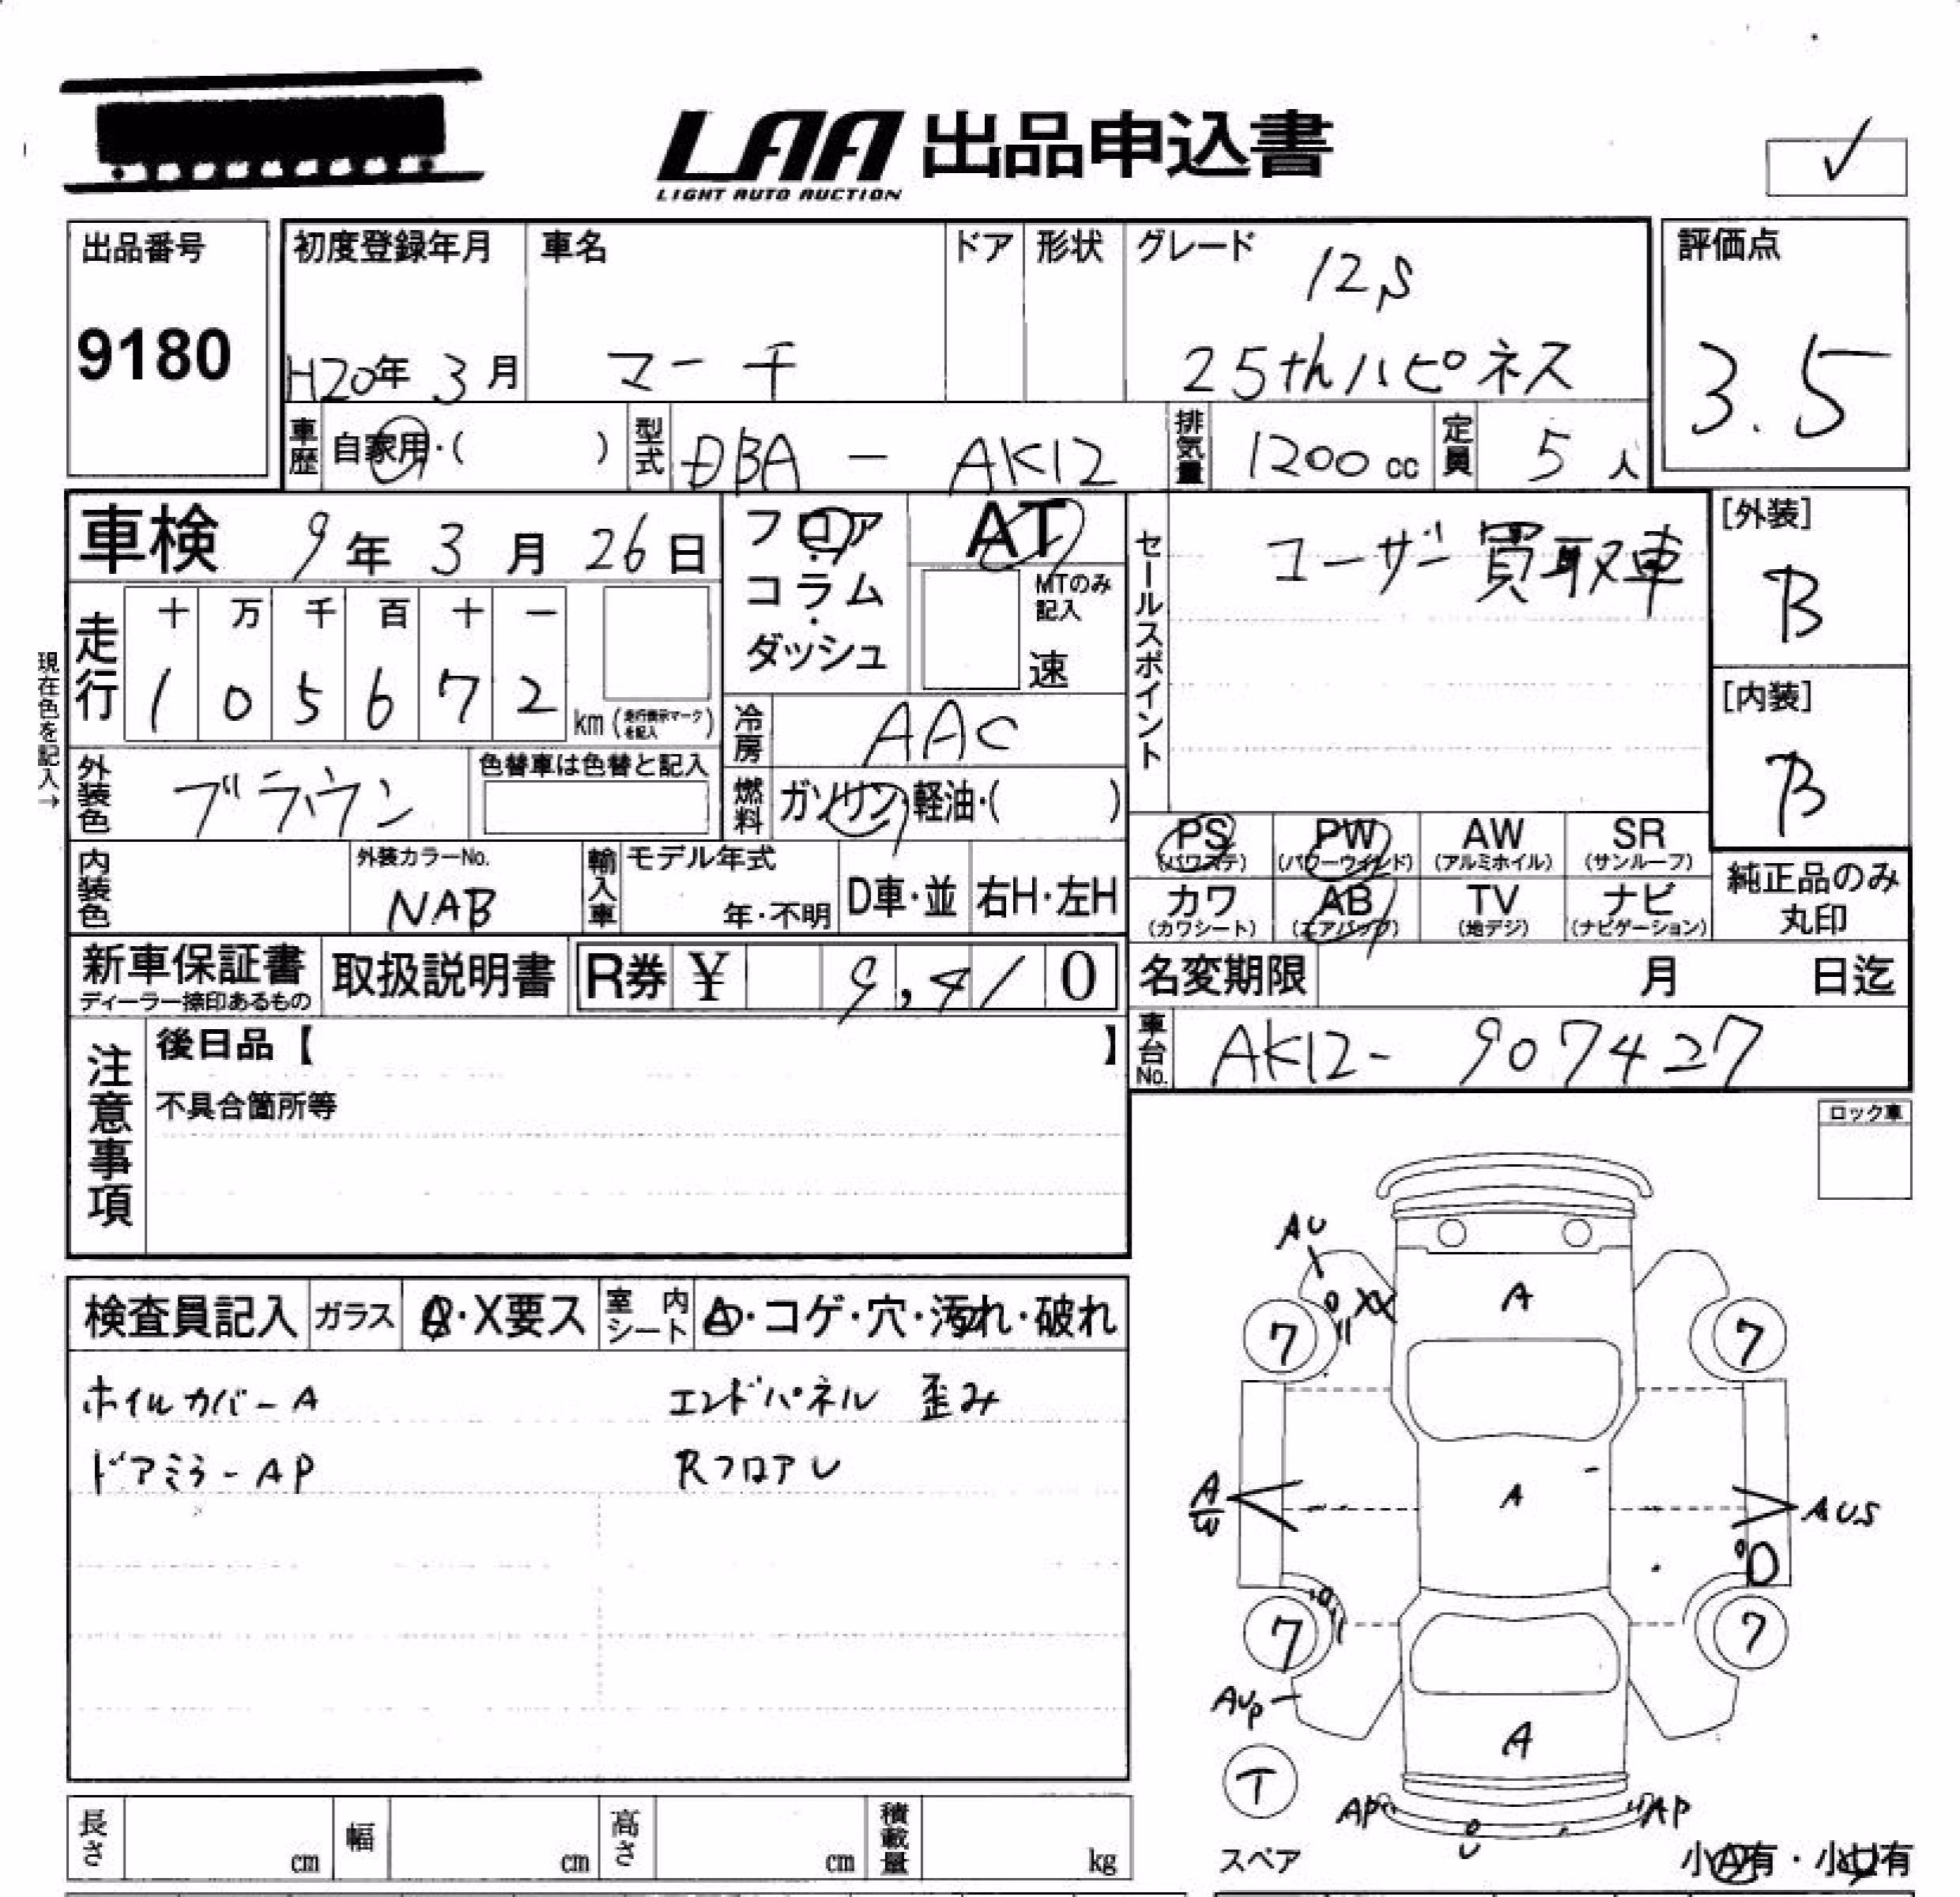 LAA 出品申込書
LIGHT AUTO AUCTION
✓
出品番号
9180
初度登録年月
H20年 3月
車名
マーチ
ドア
形状
グレード
12S
25thハピネス
評価点
3.5
車歴
自家用・( )
型式
DBA - AK12
排気量
1200cc
定員
5人
車検 9年 3月 26日
走行
十 万 千 百 十 一
1 0 5 6 7 2
km (走行表示マークを記入)
現在色を記入→
フロア・
コラム・
ダッシュ
AT
MTのみ記入
速
セールスポイント
ユーザー買取車
[外装]
B
[内装]
B
冷房
AAC
燃料
ガソリン・軽油・( )
外装色
ブラウン
色替車は色替と記入
内装色
外装カラーNo.
NAB
輸入車
モデル年式
年・不明
D車・並
右H・左H
PS
(パワステ)
PW
(パワーウィンド)
AW
(アルミホイル)
SR
(サンルーフ)
カワ
(カワシート)
AB
(エアバッグ)
TV
(地デジ)
ナビ
(ナビゲーション)
純正品のみ
丸印
新車保証書
ディーラー捺印あるもの
取扱説明書
R券 ¥ 9,410
名変期限 月 日迄
車台No.
AK12- 907427
注意事項
後日品【 】
不具合箇所等
ロック車
検査員記入
ガラス
A・X要ス
室内シート
A・コゲ・穴・汚れ・破れ
ホイルカバーA
エンドパネル 歪み
ドアミラーAP
RフロアU
AU
XX
A
7
7
A
W
A
AUS
7
7
AUP
A
T
スペア
AP
U
AP
小A有・小U有
長さ cm
幅 cm
高さ cm
積載量 kg